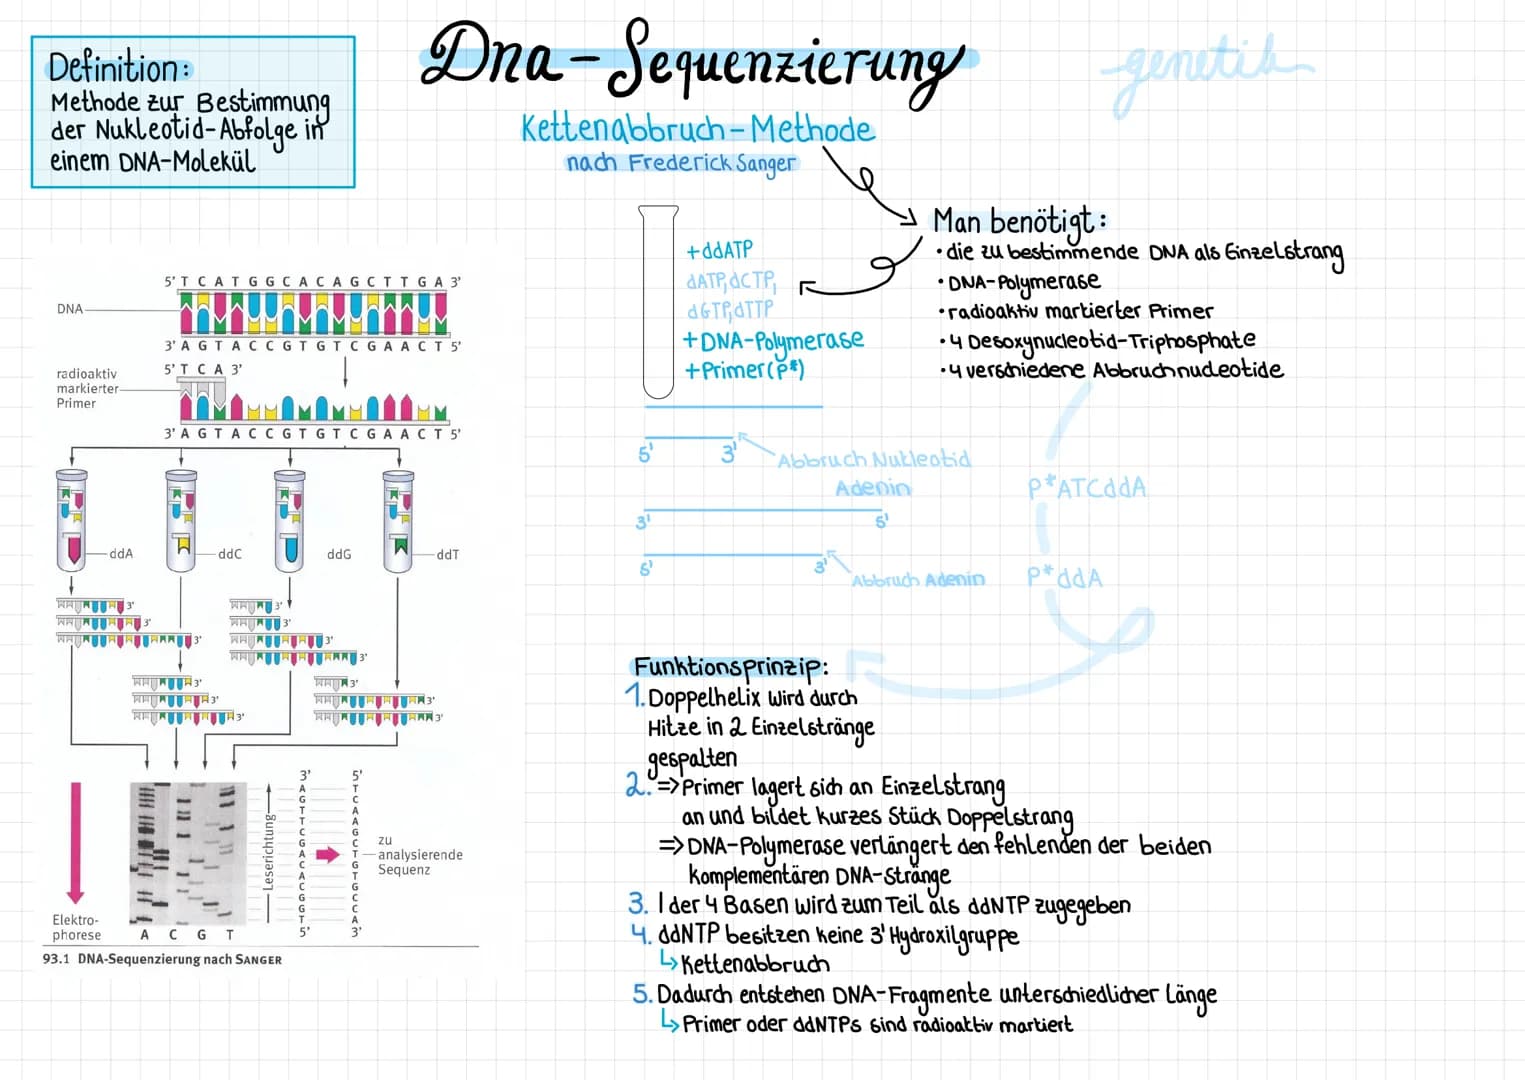 Dna-Sequenzierung
genetik
Definition:
Methode zur Bestimmung
der Nukleotid-Abfolge in
einem DNA-Molekül
Kettenabbruch-Methode
nach Frederick Sanger
Man benötigt:
• die zu bestimmende DNA als Einzelstrang
• DNA-Polymerase
• radioaktiv martierter Primer
• 4 Desoxynucleotid-Triphosphate
• 4 verschiedene Abbruchnucleotide
+ddATP
dATP, dCTP,
dGTP, dTTP
+DNA-Polymerase
+Primer(P*)
5' 3'
Abbruch Nutleotid
Adenin
3' 5'
5' 3'
Abbruch Adenin
P*ATCddA
P*ddA
5' T C A T G G C A C A G C T T G A 3'
DNA
3' A G T A C C G T G T C G A A C T 5'
radioaktiv
markierter
Primer
5' T C A 3'
3' A G T A C C G T G T C G A A C T 5'
ddA
ddC
ddG
ddT
3' 3'
3' 3'
3' 3'
3'
3' 3'
3' 3'
3' 3'
Elektro-
phorese
A C G T
Leserichtung
3'
A
G
T
T
C
G
A
C
A
C
G
G
T
5'
5'
T
C
A
A
G
C
T
G
T
G
C
C
A
3'
zu
analysierende
Sequenz
93.1 DNA-Sequenzierung nach SANGER
Funktionsprinzip:
1. Doppelhelix wird durch
Hitze in 2 Einzelstränge
gespalten
2. => Primer lagert sich an Einzelstrang
an und bildet kurzes Stück Doppelstrang
=> DNA-Polymerase verlängert den fehlenden der beiden
komplementären DNA-Stränge
3. 1 der 4 Basen wird zum Teil als ddNTP zugegeben
4. ddNTP besitzen keine 3' Hydroxilgruppe
↳ Kettenabbruch
5. Dadurch entstehen DNA-Fragmente unterschiedlicher Länge
↳ Primer oder ddNTPs sind radioaktiv martiert